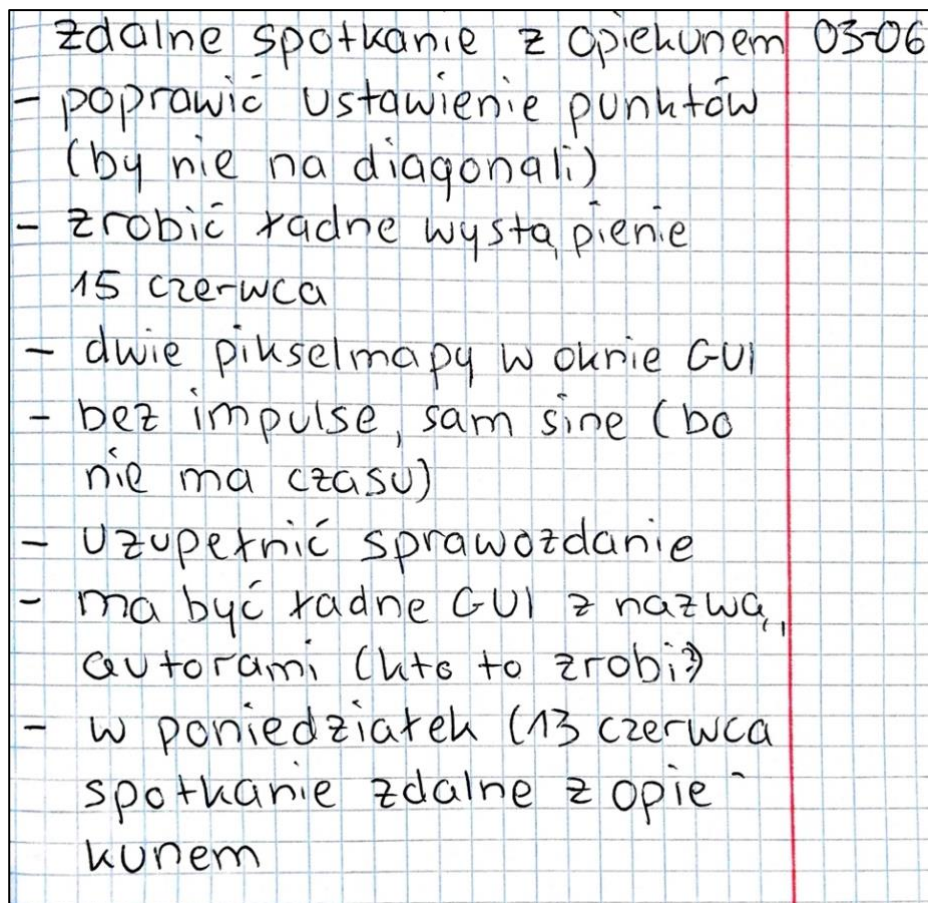 zdalne spotkanie z opiekunem 03-06
- poprawić ustawienie punktów
(by nie na diagonali)
- zrobić ładne wystąpienie
15 czerwca
- dwie pikselmapy w oknie GUI
- bez impulse, sam sine (bo
nie ma czasu)
- uzupełnić sprawozdanie
- ma być ładne GUI z nazwą,
autorami (kto to zrobi?)
- w poniedziałek (13 czerwca
spotkanie zdalne z opie-
kunem